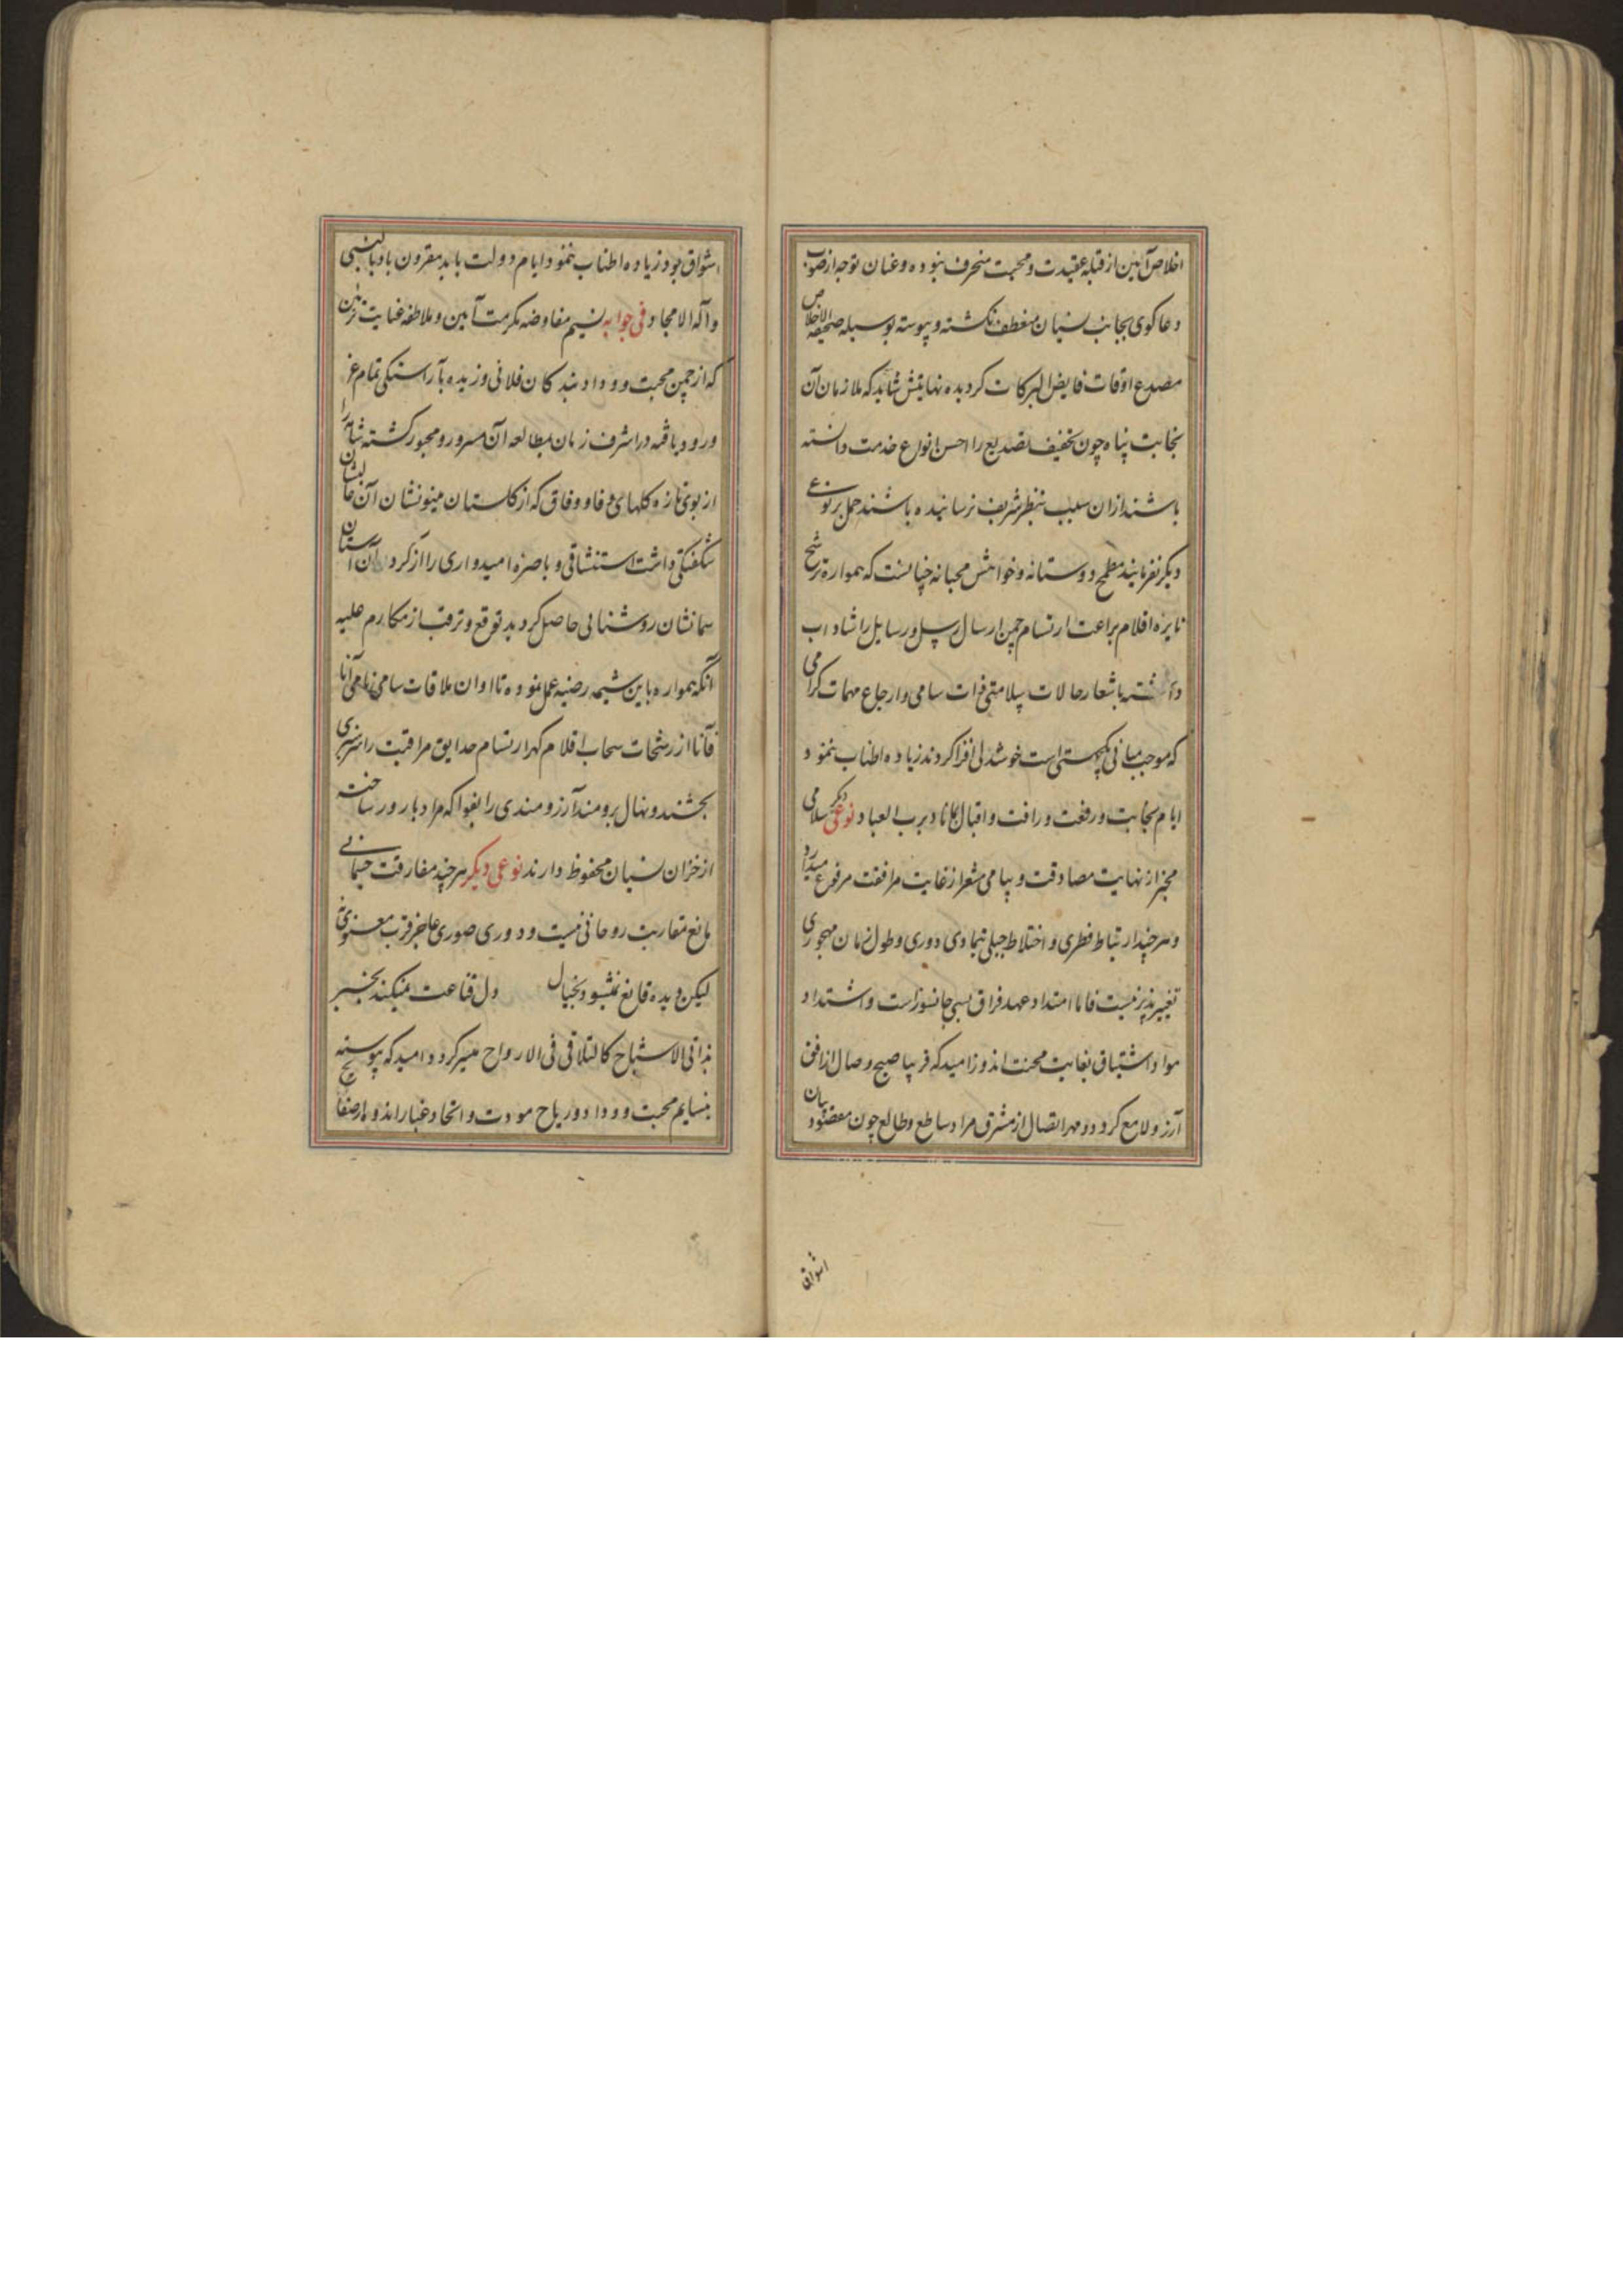 اخلاص آئین از قبله عقیدت و محبت منحرف نبوده و عنان توجه از صوب
دعاکوی بجانب نسیان منعطف نکشته و پیوسته بوسیله صحیفة الاخلاص
مصدع اوقات فایض البرکات کردیده نهایتش شاید که ملازمان آن
نجابت پناه چون تخفیف تصدیع را احسن انواع خدمت دانسته
باشند ازان سبب بنظر شریف نرسانیده باشند حمل بر نوعی
دیکر نفرمایند مطمح دوستانه و خواهش محبانه چنانست که همواره ترشح
نایزه اقلام براعت ارتسام چمن ارسال رسل و رسایل را شاداب
داشته باشعار حالات سلامتی ذات سامی و ارجاع مهمات کرامی
که موجب مبانی یکجهتی است خوشدلی افزا کردند زیاده اطناب ننمود
ایام نجابت و رفعت و رافت و اقبال بکام باد برب العباد نوعی دیکر سلامی
مخبر از نهایت مصادقت و پیامی مشعر از غایت مرافقت مرفوع میدارد
و هر چند ارتباط فطری و اختلاط جبلی بتمادی دوری و طول زمان مهجوری
تغییر پذیر نیست فاما امتداد عهد فراق بسی جانسوز است و اشتداد
مواد اشتیاق بغایت محنت اندوز امید که قریبا صبح وصال از افق
آرزو لامع کردد و مهر اتصال از مشرق مراد ساطع و طالع چون مقصود بیان
اشواق
اشواق بود زیاده اطناب ننمود ایام دولت باید مقرون باد بالنبی
و آله الامجاد فی جوابه نسیم مفاوضه مکرمت آیین و ملاطفه عنایت تزئین
که از چمن محبت و وداد بندکان فلانی وزیده بآراستکی تمام عز
ورود یافته در اشرف زمان بمطالعه آن مسرور و محبور کشته شامه را
از بوی تازه کلهای وفا و وفاق که از کلستان مینونشان آن عالیشان
شکفتکی داشت استنشاقی و باصره امیدواری را از کرد آن آستان
سمانشان روشنایی حاصل کردید توقع و ترقب از مکارم علیه
آنکه همواره باین شیمه رضیه عمل نموده تا اوان ملاقات سامی نامی آنا
فآنا از رشحات سحاب اقلام کهر ارتسام حدایق مرافقت را سرسبزی
بخشند و نهال برومند آرزومندی را بفواکه مراد بارور ساخته
از خزان نسیان محفوظ دارند نوعی دیکر هر چند مفارقت جسمانی
مانع تقاربت روحانی نیست و دوری صوری حاجز قرب معنوی نه
لیکن دیده قانع نمیشود بخیال دل قناعت نمیکند بخبر
تلاقی الاشباح کالتلاقی فی الارواح میسر کردد امید که پیوسته
بنسایم محبت و وداد و ریاح مودت و اتحاد غبار اندوه از صفایح